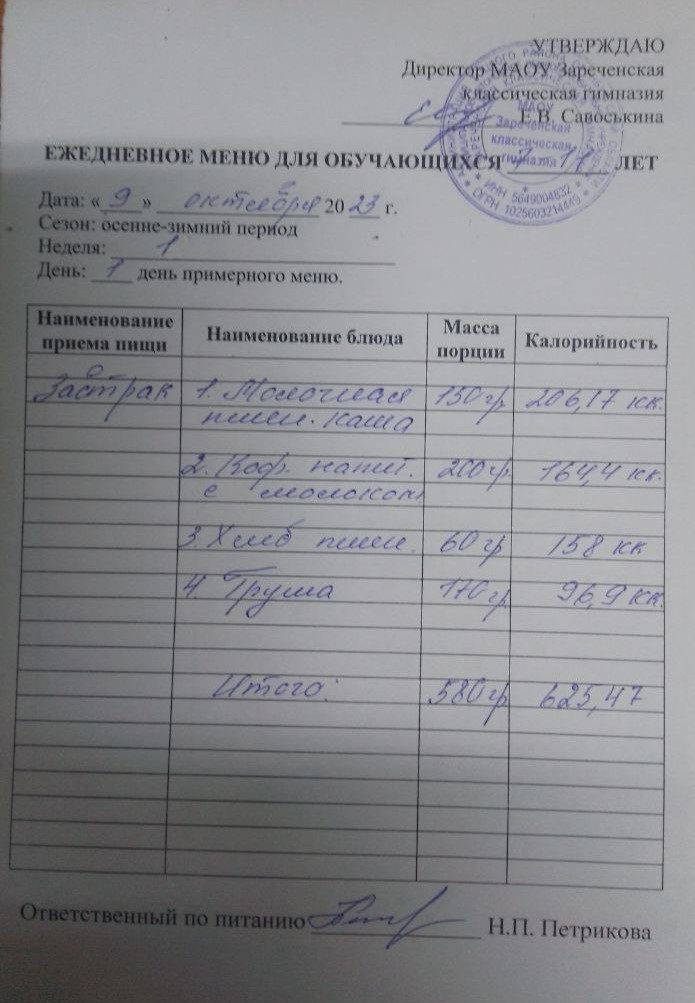 УТВЕРЖДАЮ
Директор МАОУ Зареченская
классическая гимназия
Е.В. Савоськина
МАОУ
Зареченская
классическая
гимназия
* ИНН 5649004832 *
* ОГРН 1025603214449 *
ЕЖЕДНЕВНОЕ МЕНЮ ДЛЯ ОБУЧАЮЩИХСЯ 7-11 ЛЕТ
Дата: « 9 » октября 20 23 г.
Сезон: осенне-зимний период
Неделя: 1
День: 1 день примерного меню.
Наименование приема пищи Наименование блюда Масса порции Калорийность
Завтрак 1. Молочная 150 гр 206,17 кк.
пшен. каша
2. Коф. напит. 200 гр 164,4 кк.
с молоком
3. Хлеб пшен. 60 гр 158 кк
4. Груша 170 гр 96,9 кк.
Итого: 580 гр 625,47
Ответственный по питанию Н.П. Петрикова